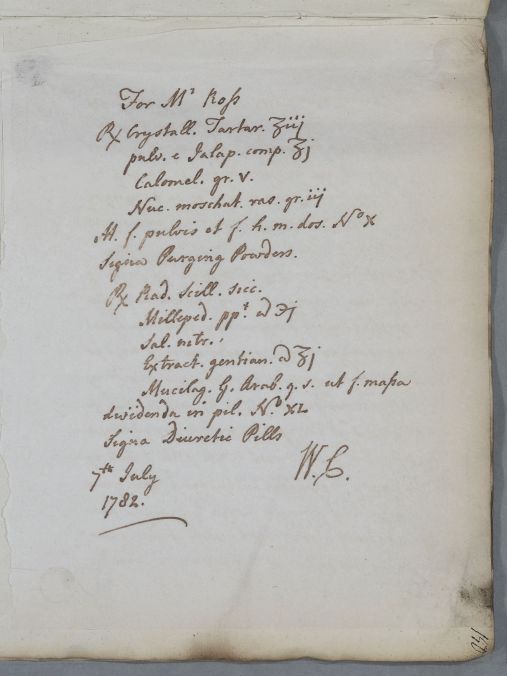 For Mʳ Roſs
℞ Crystall. Tartar. ʒiij
pulv. e Jalap. comp. ʒj
Calomel. gr. v.
Nuc. moschat. ras. gr. iij
M. f. pulvis et f. h. m. dos. Nº x
Signa Purging Powders.
℞ Rad. Scill. sicc.
Milleped. ppᵗ a ℈j
Sal. nitr.
Extract. gentian. a ʒj
Mucilag. G. Arab. q. s. ut f. maſsa
dividenda in pil. Nº XL
Signa Diuretic Pills
W. C.
7ᵗʰ July
1782.
140